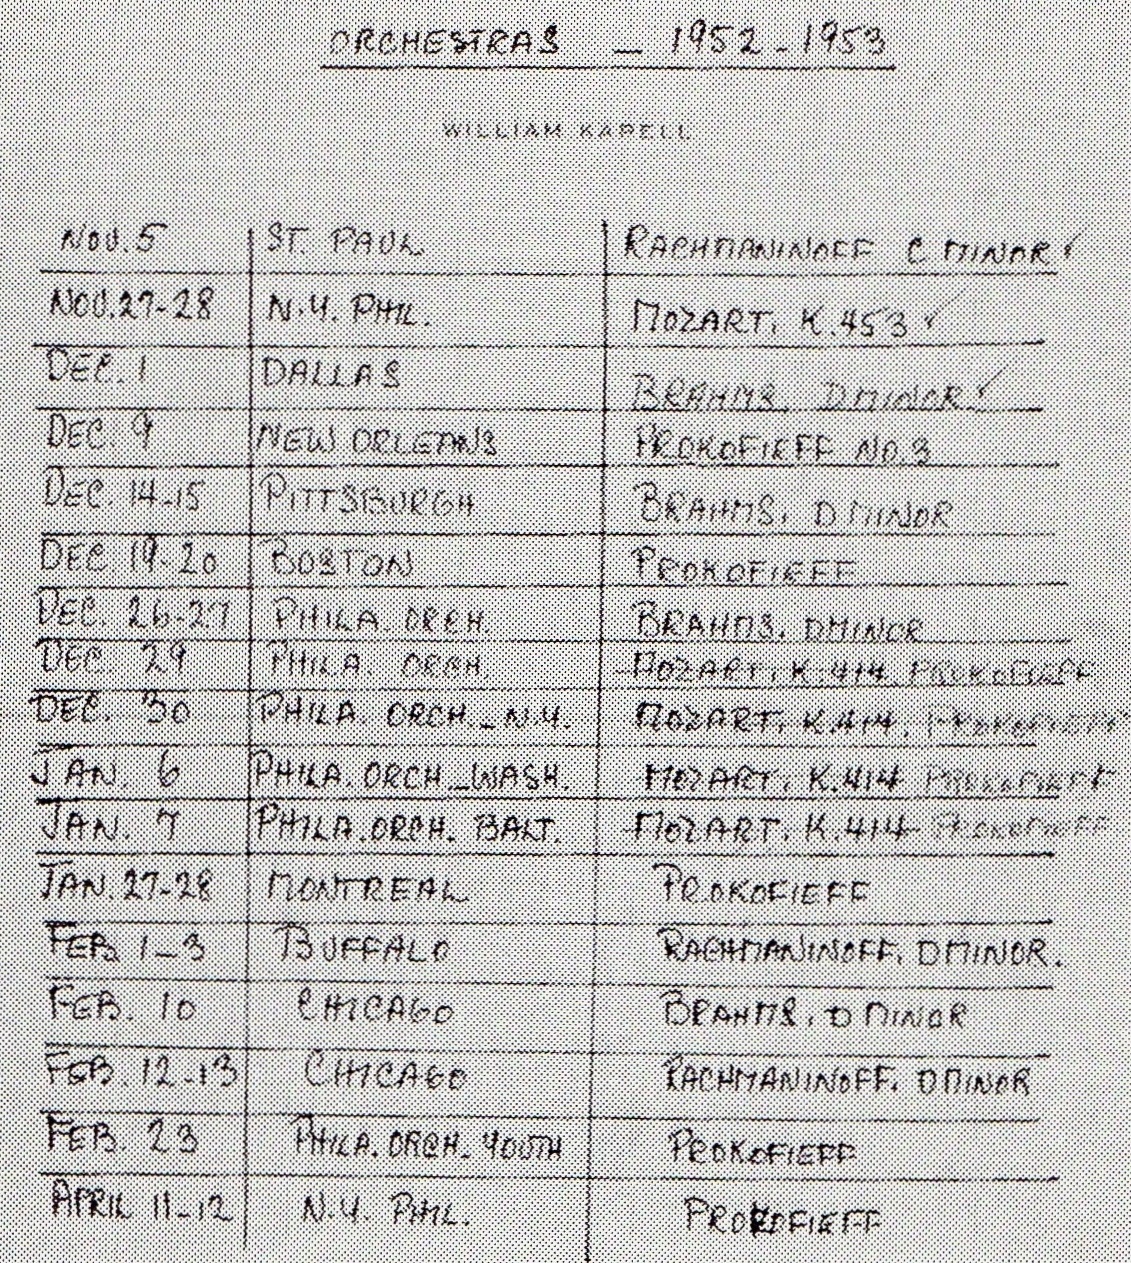 ORCHESTRAS - 1952-1953
WILLIAM KAPELL
NOV. 5 ST. PAUL RACHMANINOFF C MINOR ✓
NOV. 27-28 N.Y. PHIL. MOZART. K.453 ✓
DEC. 1 DALLAS BRAHMS. D MINOR ✓
DEC. 9 NEW ORLEANS PROKOFIEFF NO.3
DEC. 14-15 PITTSBURGH BRAHMS. D MINOR
DEC 19-20 BOSTON PROKOFIEFF
DEC. 26-27 PHILA. ORCH. BRAHMS. D MINOR
DEC. 29 PHILA. ORCH. MOZART. K.414 PROKOFIEFF
DEC. 30 PHILA. ORCH. - N.Y. MOZART. K.414. PROKOFIEFF
JAN. 6 PHILA. ORCH - WASH. MOZART. K.414 PROKOFIEFF
JAN. 7 PHILA. ORCH. BALT. MOZART. K.414 PROKOFIEFF
JAN. 27-28 MONTREAL PROKOFIEFF
FEB 1-3 BUFFALO RACHMANINOFF. D MINOR.
FEB. 10 CHICAGO BRAHMS. D MINOR
FEB. 12-13 CHICAGO RACHMANINOFF. D MINOR
FEB. 23 PHILA. ORCH. YOUTH PROKOFIEFF
APRIL 11-12 N.Y. PHIL. PROKOFIEFF